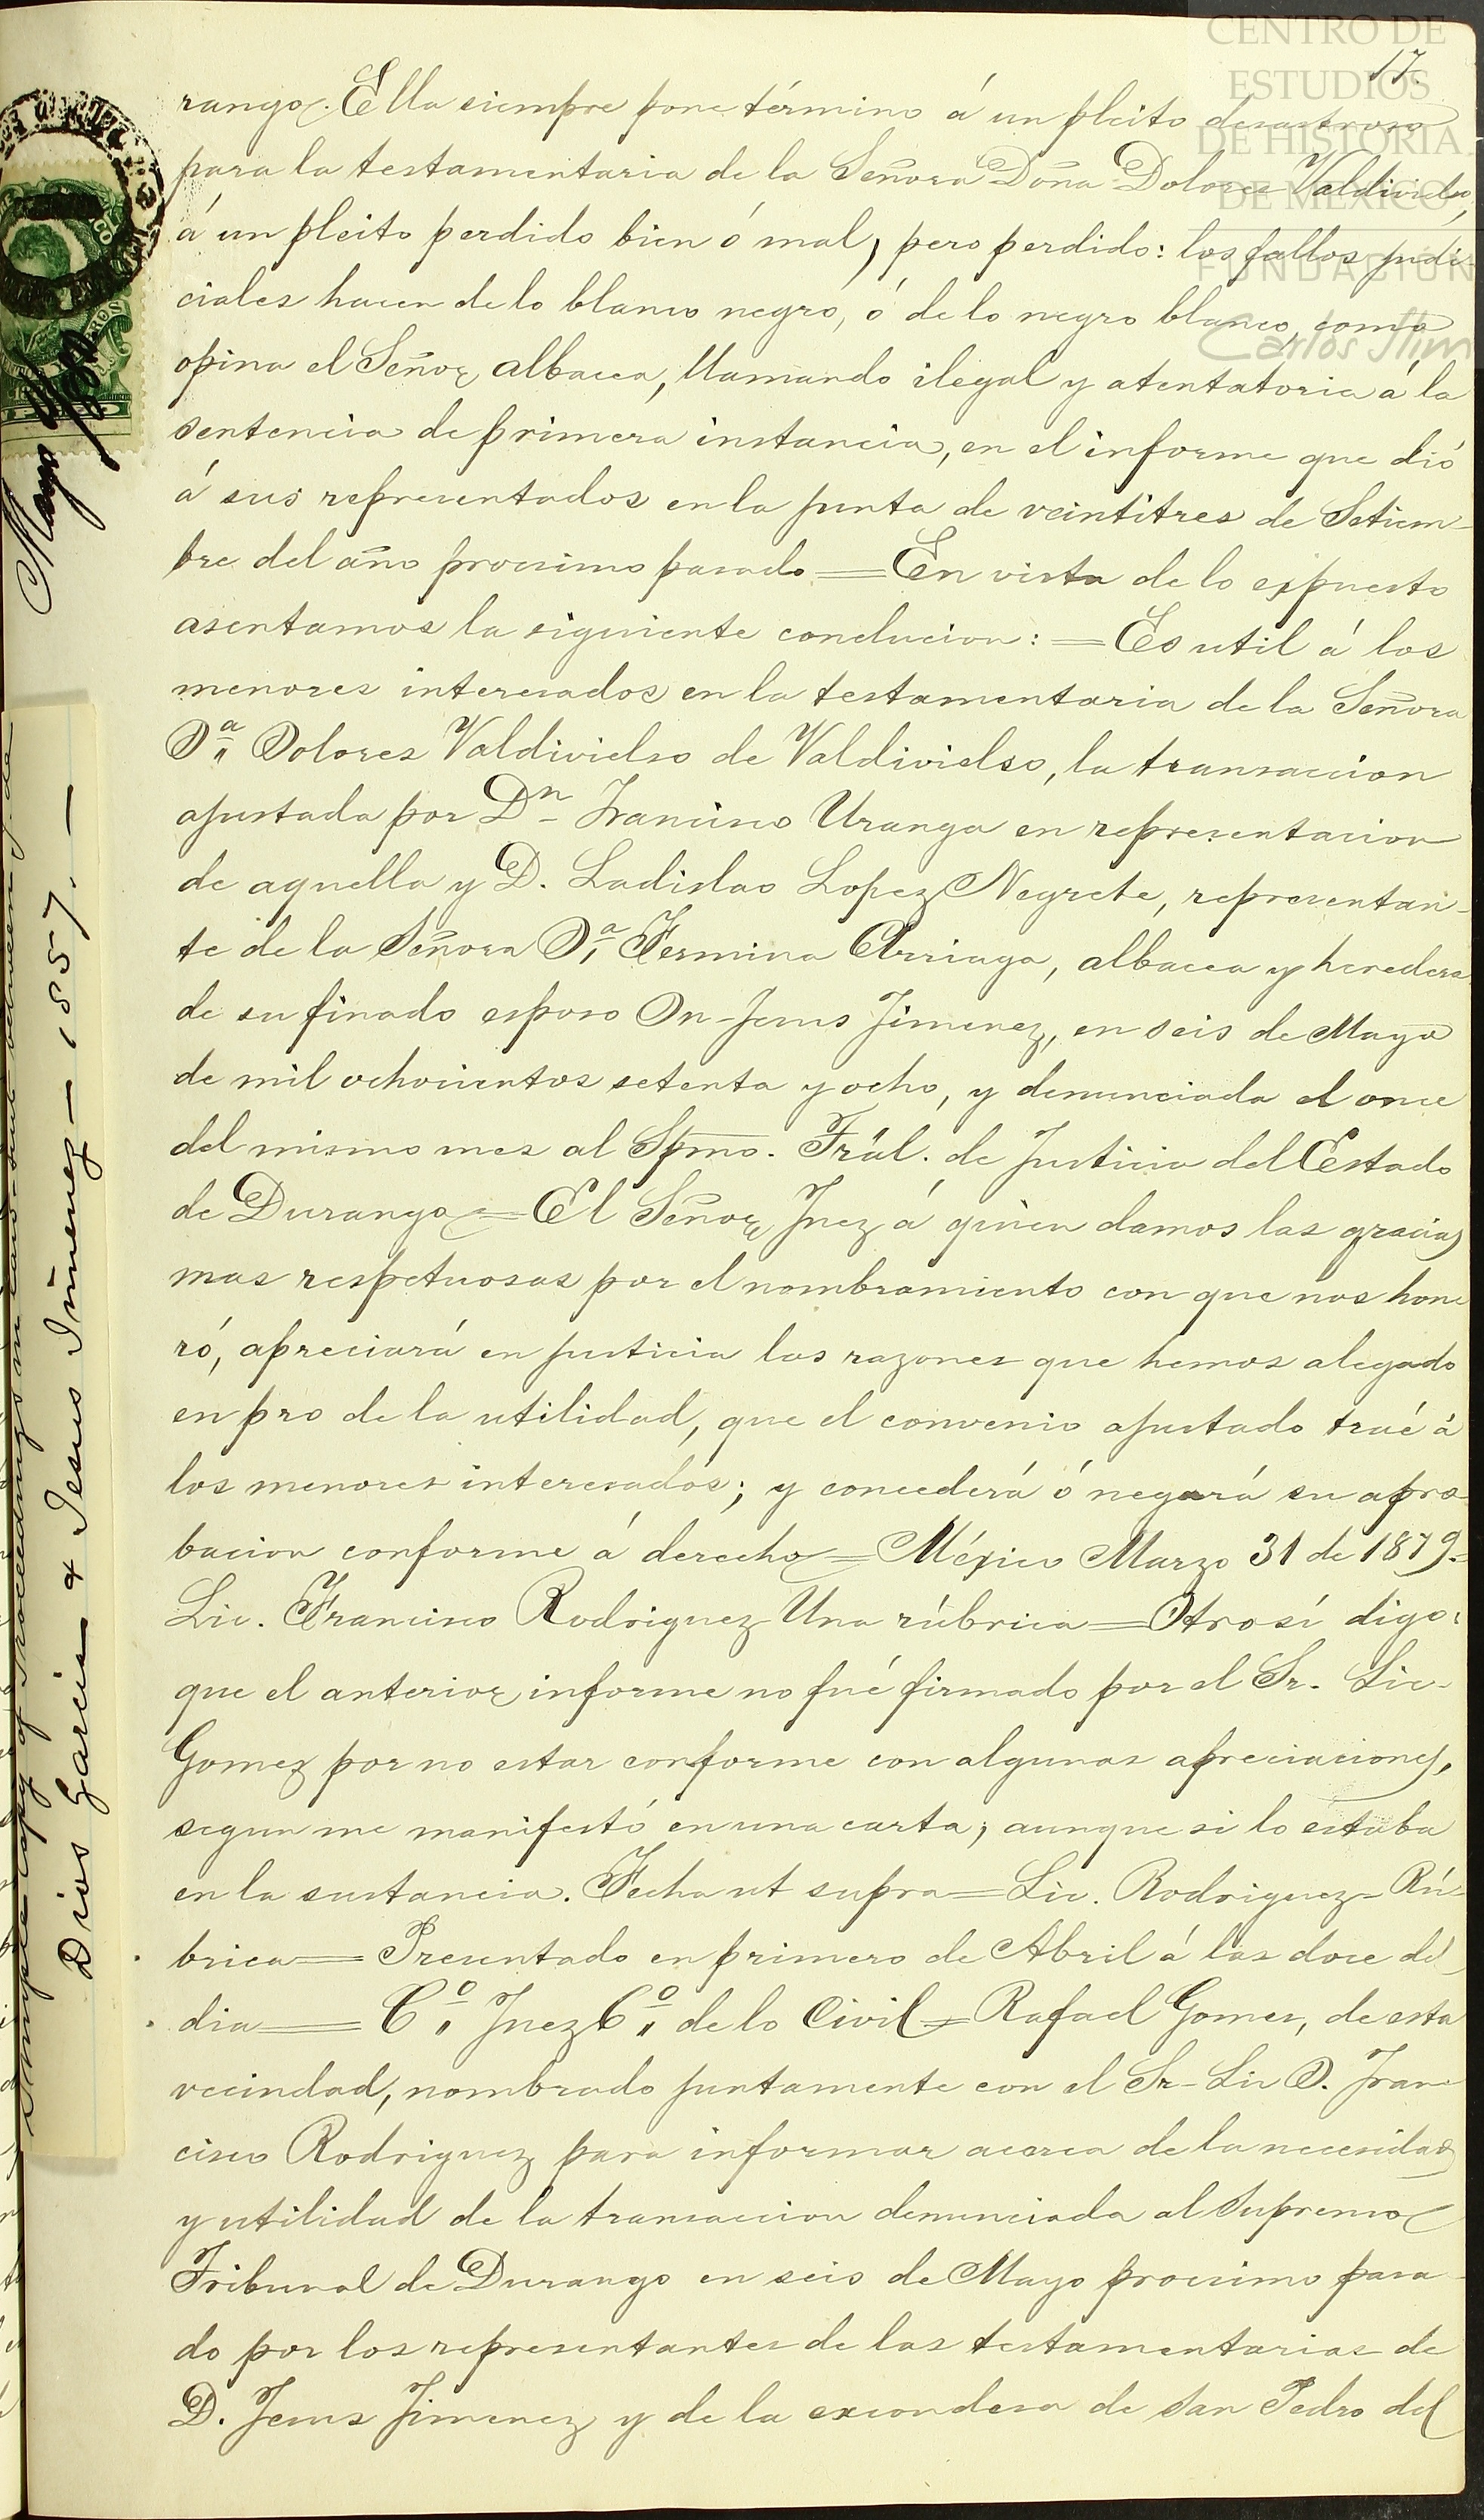 17.
rango. Ella siempre pone término á un pleito desastroso
para la testamentaria de la Señora Doña Dolores Valdivielso,
á un pleito perdido bien ó mal, pero perdido: los fallos judi-
ciales hacen de lo blanco negro, ó de lo negro blanco, como
opina el Señor albacea, llamando ilegal y atentatoria á la
sentencia de primera instancia, en el informe que dió
á sus representados en la junta de veintitres de Setiem-
bre del año procsimo pasado = En vista de lo espuesto
asentamos la siguiente conclucion: = Es util á los
menores interesados en la testamentaria de la Señora
Dª Dolores Valdivielso de Valdivielso, la transaccion
ajustada por Dn Francisco Uranga en representacion
de aquella y D. Ladislao Lopez Negrete, representan-
te de la Señora Dª Fermina Arriaga, albacea y heredera
de su finado esposo Dn Jesus Jimenez, en seis de Mayo
de mil ochocientos setenta y ocho, y denunciada el once
del mismo mes al Spmo. Trál. de Justicia del Estado
de Durango = El Señor Juez á quien damos las gracias
mas respetuosas por el nombramiento con que nos hon-
ró, apreciará en justicia las razones que hemos alegado
en pro de la utilidad, que el convenio ajustado traé á
los menores interesados; y concederá ó negará su apro-
bacion conforme á derecho = México Marzo 31 de 1879 =
Lic. Francisco Rodriguez Una rúbrica = Otrosí digo:
que el anterior informe no fué firmado por el Sr. Lic.
Gomez por no estar conforme con algunas apreciaciones,
segun me manifestó en una carta; aunque si lo estaba
en la sustancia. Fecha ut supra = Lic. Rodriguez - Rú-
brica = Presentado en primero de Abril á las doce del
dia = C.º Juez 6.º de lo Civil = Rafael Gomes, de esta
vecindad, nombrado juntamente con el Sr. Lic D. Fran-
cisco Rodriguez para informar acerca de la necesidad
y utilidad de la transaccion denunciada al Supremo
Tribunal de Durango en seis de Mayo procsimo pasa-
do por los representantes de las testamentarias de
D. Jesus Jimenez y de la excondesa de San Pedro del
Mayo
Simple copy of Proceedings in
Dios Garcia & Jesus Jimenez — 1857. —
CENTRO DE
ESTUDIOS
DE HISTORIA
DE MEXICO
FUNDACIÓN
Carlos Slim